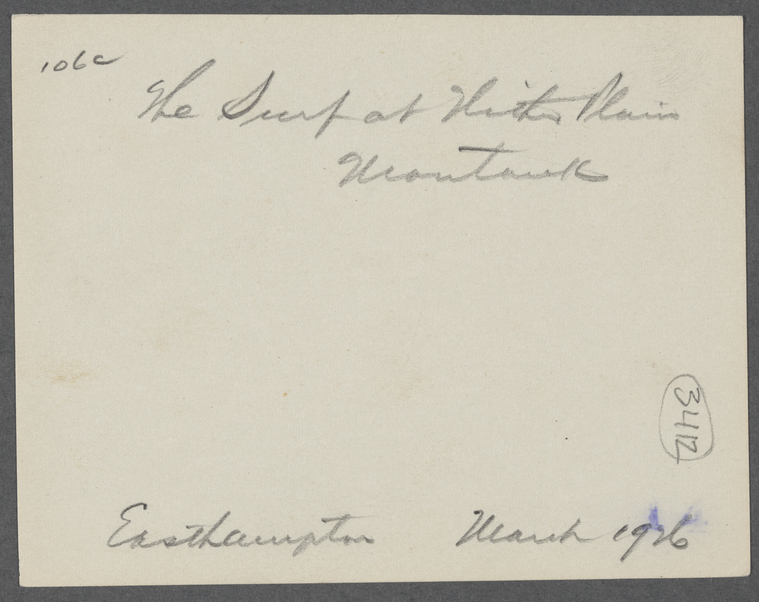 106c
The Surf at Hither Plain
Montauk
3412
Easthampton March 1926